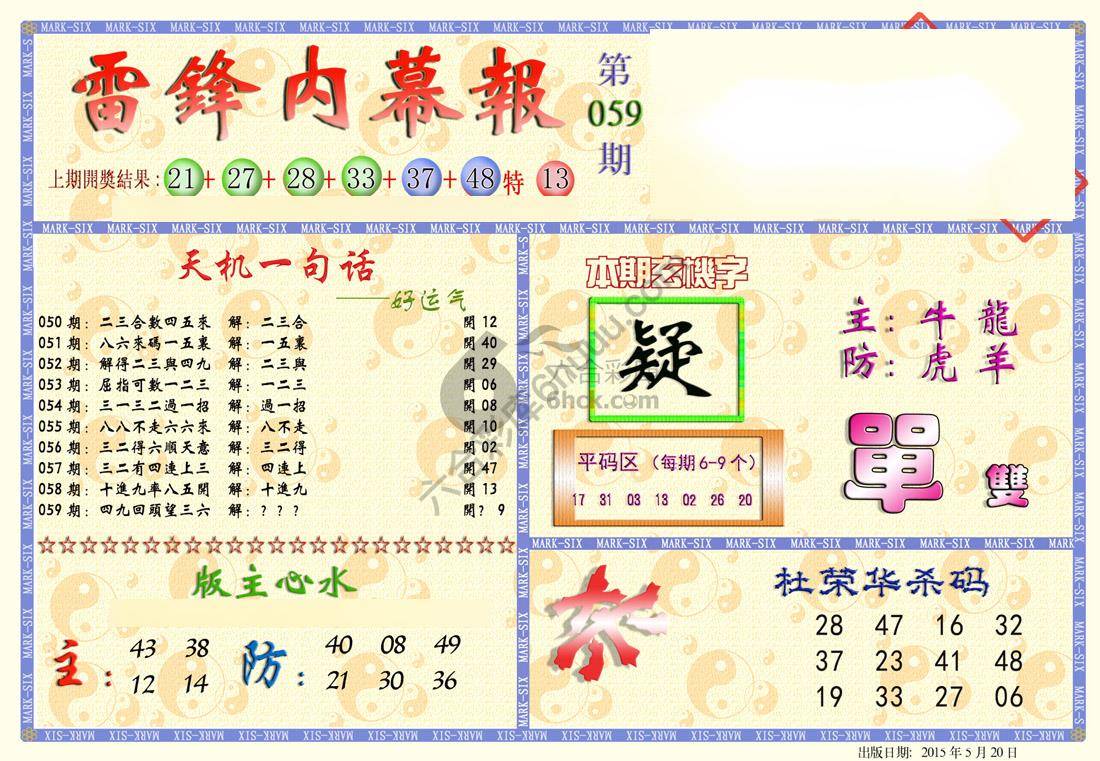 雷鋒内幕報
第
059
期
上期開獎結果：21+27+28+33+37+48特13
天机一句话
——好运气
050期：二三合數四五來 解：二三合 開12
051期：八六來碼一五裏 解：一五裏 開40
052期：解得二三與四九 解：二三與 開29
053期：屈指可數一二三 解：一二三 開06
054期：三一三二過一招 解：過一招 開08
055期：八八不走六六來 解：八不走 開10
056期：三二得六順天意 解：三二得 開02
057期：三二有四連上三 解：四連上 開47
058期：十進九率八五開 解：十進九 開13
059期：四九回頭望三六 解：？？？ 開？9
☆☆☆☆☆☆☆☆☆☆☆☆☆☆☆☆☆☆☆☆☆☆☆
本期玄機字
疑
主：牛 龍
防：虎 羊
單 雙
平码区（每期6-9个）
17 31 03 13 02 26 20
版主心水
主：
43 38
12 14
防：
40 08 49
21 30 36
杀
杜荣华杀码
28 47 16 32
37 23 41 48
19 33 27 06
MARK-SIX
六合彩
6hck.com
出版日期: 2015年5月20日